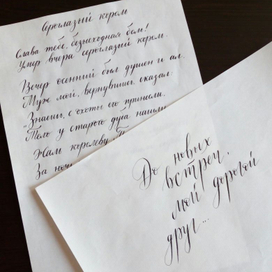 Сероглазый король
Слава тебе, безысходная боль!
Умер вчера сероглазый король.
Вечер осенний был душен и ал,
Муж мой, вернувшись, сказал:
"Знаешь, с охоты его принесли,
Тело у старого дуба нашли.
Жаль королеву.
За ночь
До новых
встреч,
мой дорогой
друг...